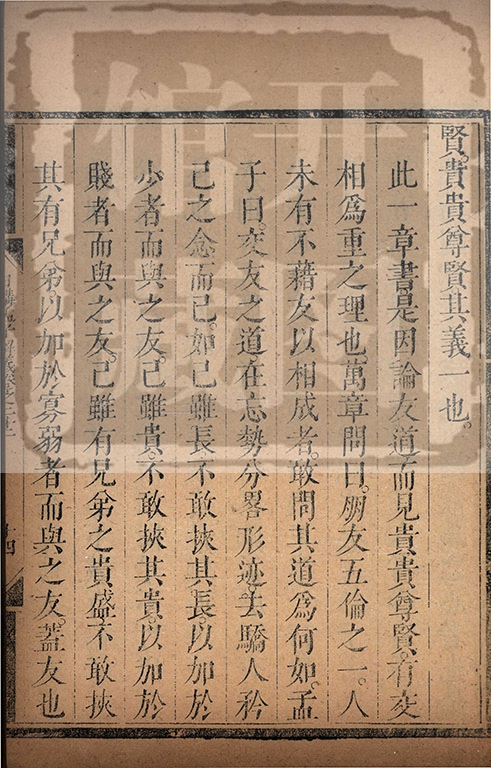 賢貴貴尊賢其義一也。
此一章書是因論友道而見貴貴尊賢有交
相為重之理也萬章問曰朋友五倫之一人
未有不藉友以相成者敢問其道為何如孟
子曰交友之道在忘勢分畧形迹去驕人矜
己之念而已如己雖長不敢挾其長以加於
少者而與之友己雖貴不敢挾其貴以加於
賤者而與之友己雖有兄弟之貴盛不敢挾
其有兄弟以加於寡弱者而與之友蓋友也